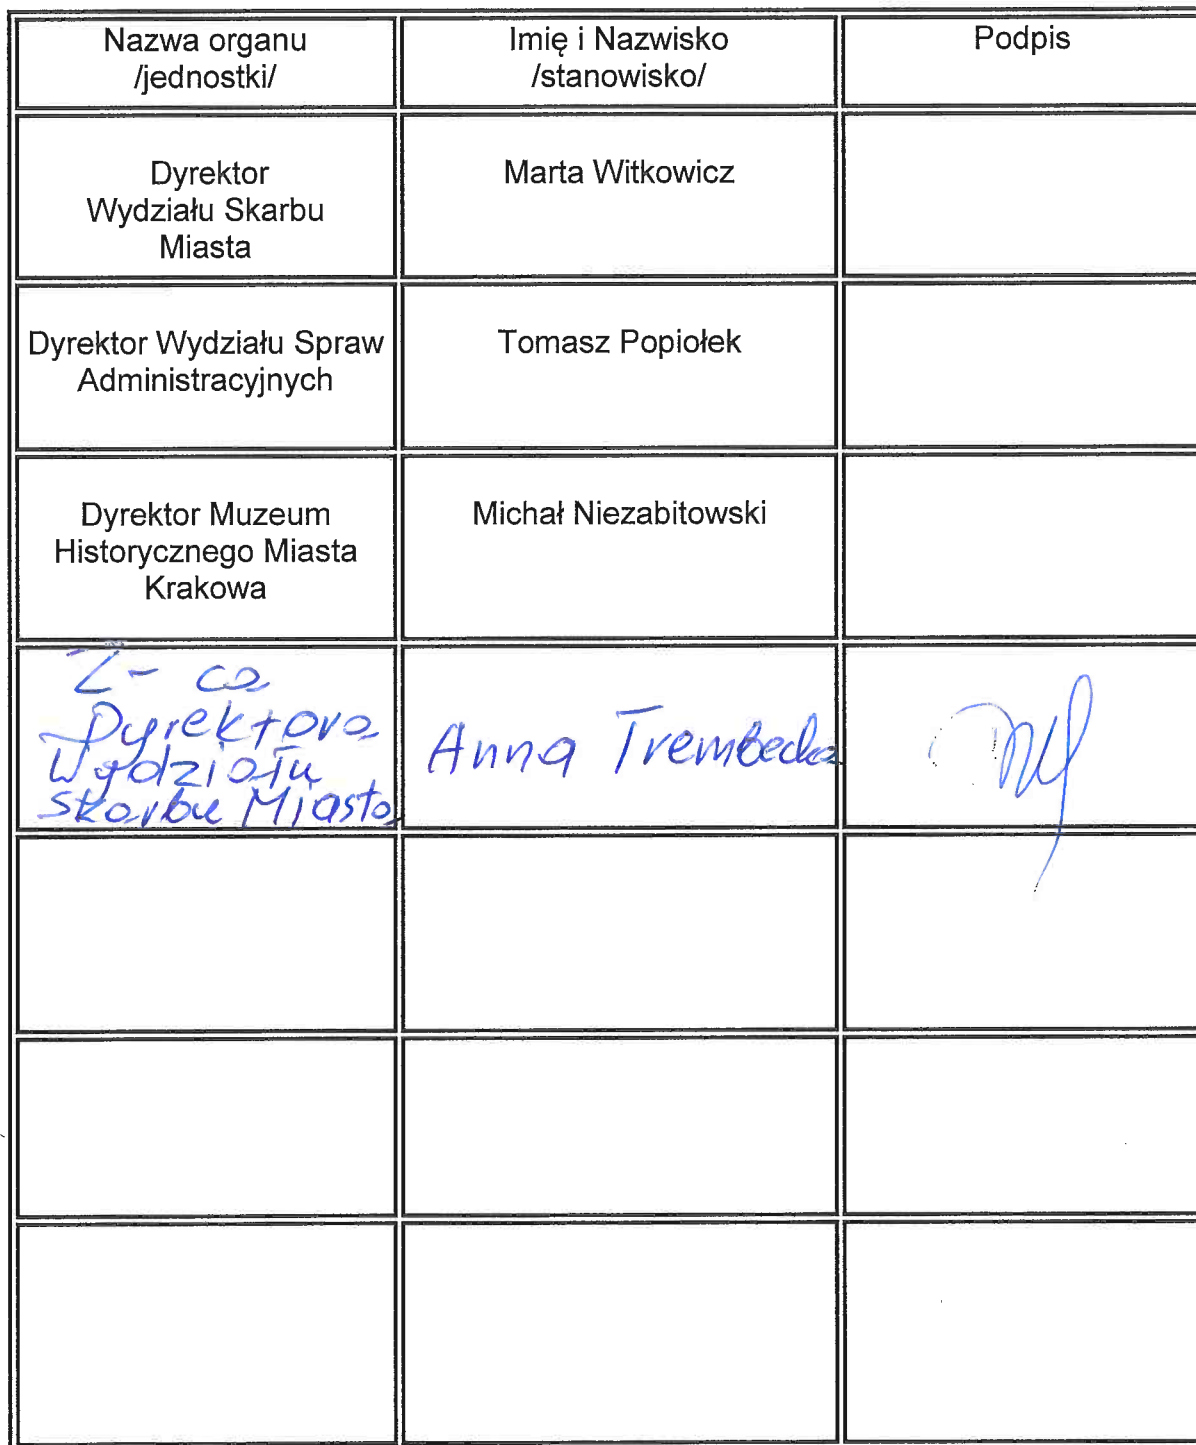 Nazwa organu
/jednostki/
Imię i Nazwisko
/stanowisko/
Podpis
Dyrektor
Wydziału Skarbu
Miasta
Marta Witkowicz
Dyrektor Wydziału Spraw
Administracyjnych
Tomasz Popiołek
Dyrektor Muzeum
Historycznego Miasta
Krakowa
Michał Niezabitowski
Z-ca
Dyrektora
Wydziału
Skarbu Miasta
Anna Trembecka